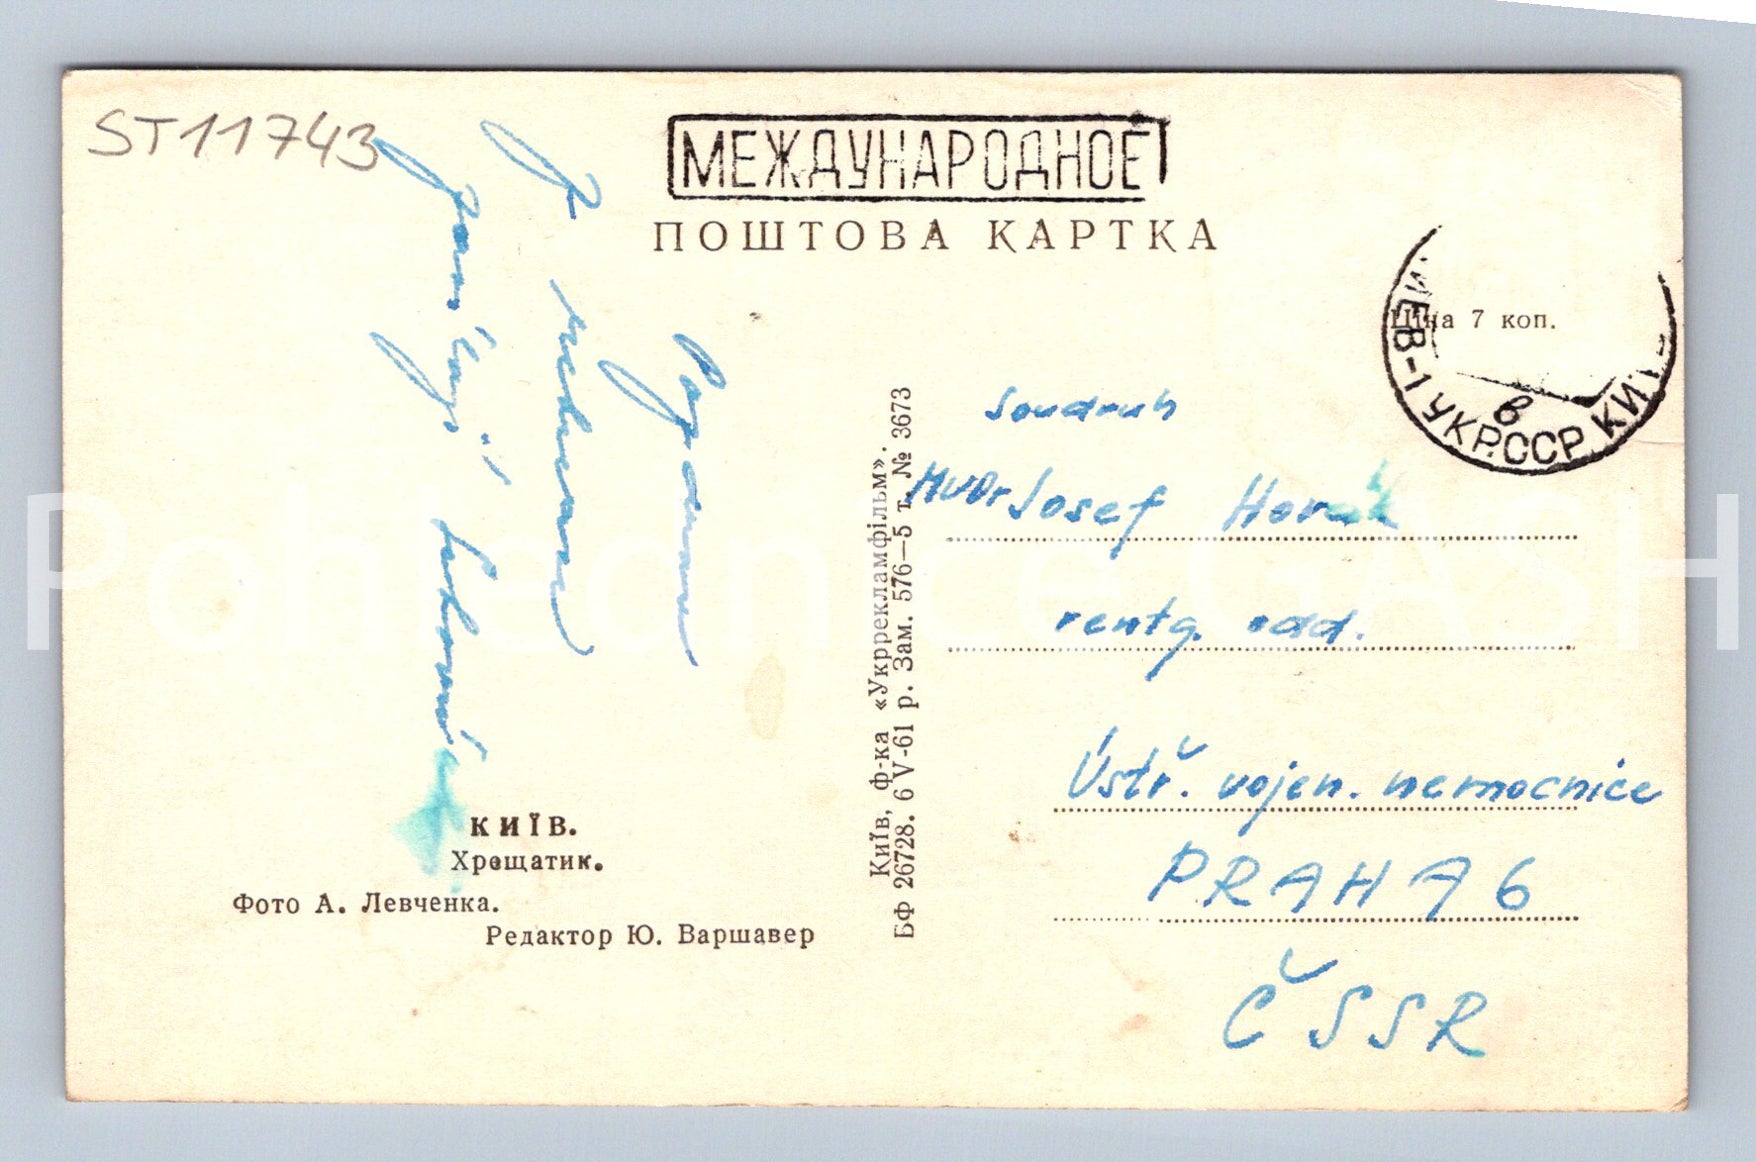 ST11743
МЕЖДУНАРОДНОЕ
ПОШТОВА КАРТКА
Ціна 7 коп.
КИЕВ-1 УКР.ССР
в
Pozdrav
z
Soudruh
MUDr Josef Horák
rentg. odd.
Ústř. vojen. nemocnice
PRAHA 6
ČSSR
Київ, ф-ка «Укррекламфільм».
БФ 26728. 6 V-61 р. Зам. 576—5 т. № 3673
КИЇВ.
Хрещатик.
Фото А. Левченка.
Редактор Ю. Варшавер
Pohlednice GASH